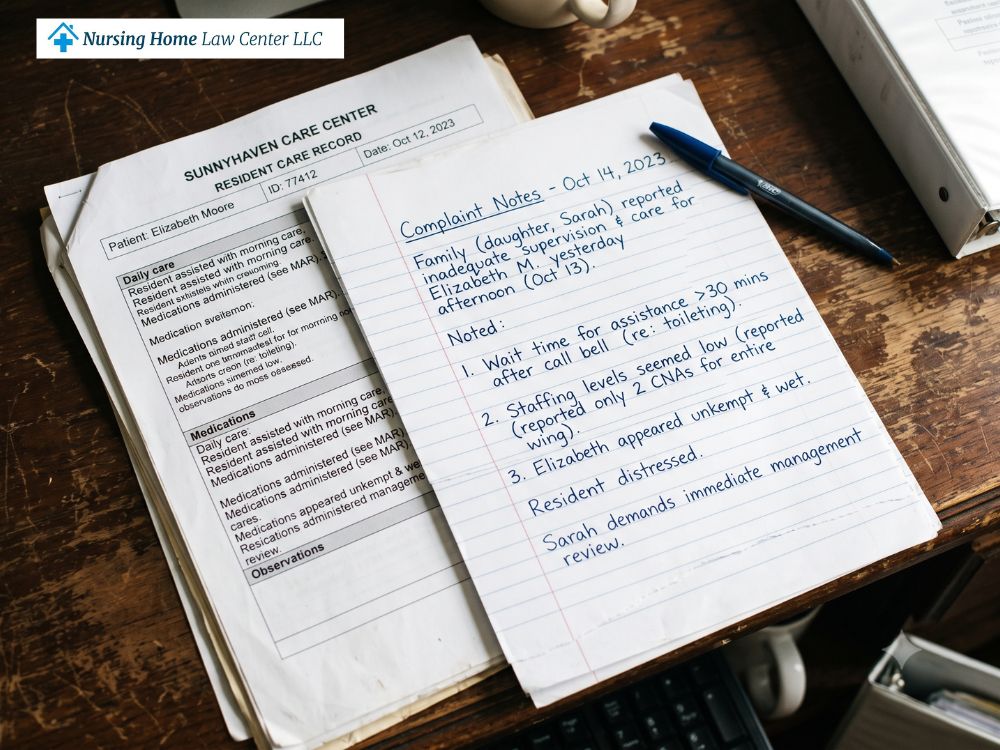 Nursing Home Law Center LLC
SUNNYHAVEN CARE CENTER
RESIDENT CARE RECORD
Patient: Elizabeth Moore
ID: 77412
Date: Oct 12, 2023
Daily care
Resident assisted with morning care,
Resident assisted with morning care.
Resident
Medications administered (see MAR).
Medication
Medications administered (see MAR).
Resident one for for morning
(re: toileting).
Medications low.
observations do moss
Medications
Daily care:
Resident assisted with morning care,
Resident assisted with morning care
Medications administered (see MAR)
Medications administered (see MAR)
Medications administered (see MAR).
cares.
Medications appeared unkempt & we
administered manageme
review.
Observations
Complaint Notes - Oct 14, 2023
Family (daughter, Sarah) reported
inadequate supervision & care for
Elizabeth M. yesterday
afternoon (Oct 13).
Noted:
1. Wait time for assistance >30 mins
after call bell (re: toileting).
2. Staffing levels seemed low (reported
(reported only 2 CNAs for entire
wing).
3. Elizabeth appeared unkempt & wet.
Resident distressed.
Sarah demands immediate management
review.
BIC